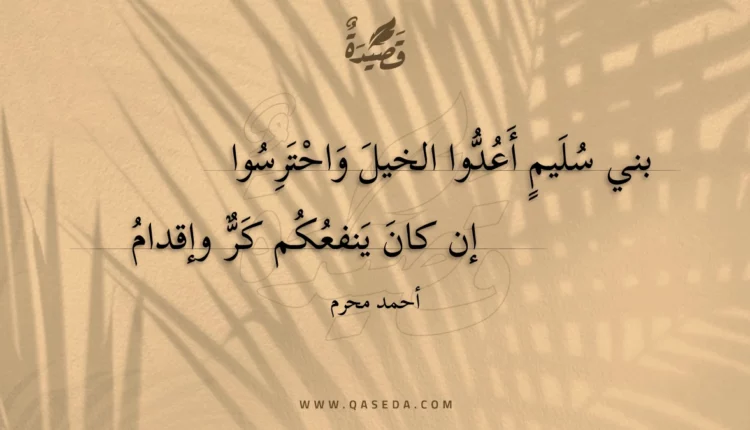 قَصِيْدَةٌ
بني سُلَيمٍ أَعُدُّوا الخيلَ وَاحْتَرِسُوا
إن كانَ يَنفعُكُم كَرٌّ وإقدامُ
أحمد محرم
WWW.QASEDA.COM